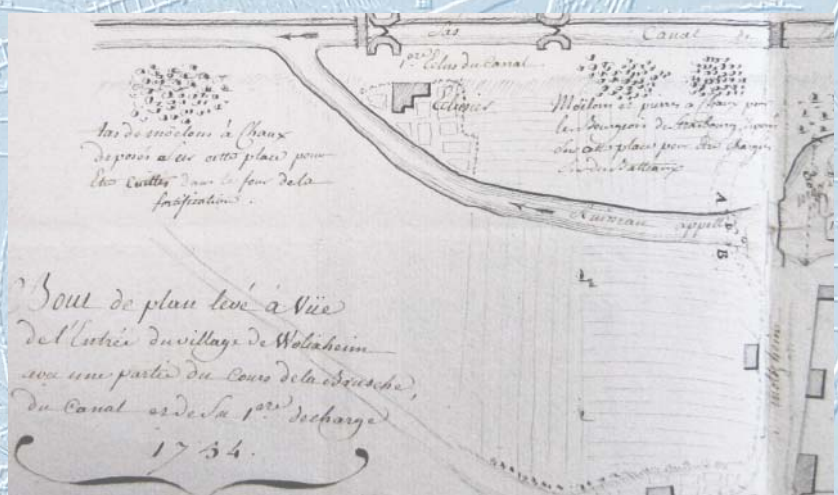 Sas
Canal de
1ere Ecluse du Canal.
Eclusier
tas de moëlons à Chaux
deposés à cette place pour
Etre cuittes dans le four de la
fortification.
Moëlons et pierres à Chaux pour
les Bourgeois de Strasbourg
cette place pour être chargés
Batteaux
A
B
Ruisseau appellé
Bout de plan levé à Vüe
de l'Entrée du village de Wolxheim
avec une partie du Cours de la Brusche,
du Canal et de Sa 1ere decharge
1754.